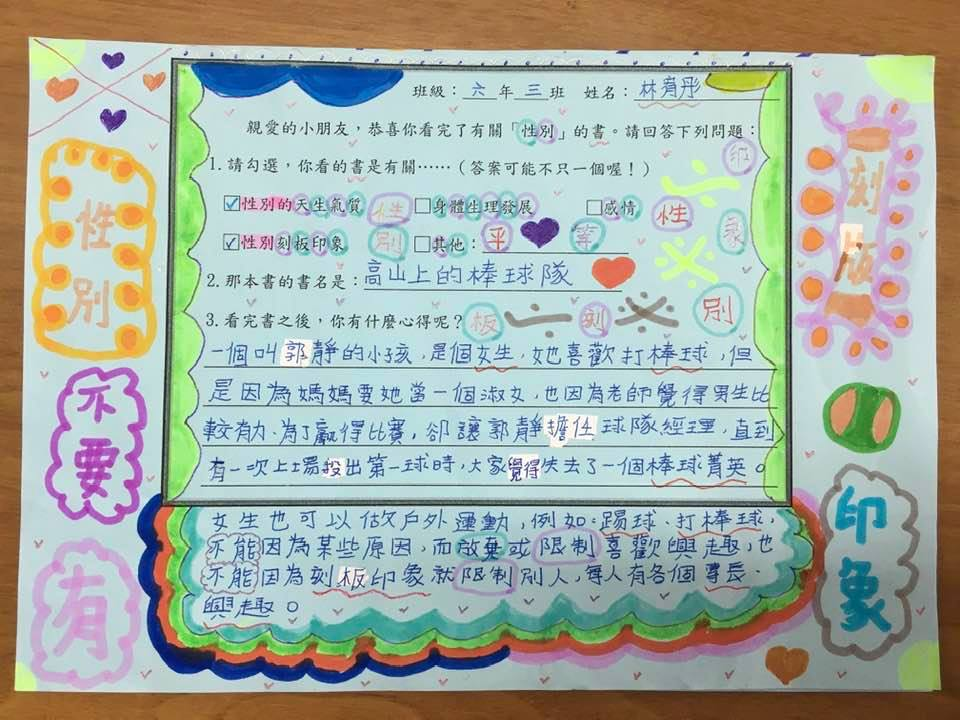 班級：六年三班 姓名：林育彤
親愛的小朋友，恭喜你看完了有關「性別」的書。請回答下列問題：
1.請勾選，你看的書是有關……（答案可能不只一個喔！）
☑性別的天生氣質 □身體生理發展 □感情
☑性別刻板印象 □其他：平等
2.那本書的書名是：高山上的棒球隊
3.看完書之後，你有什麼心得呢？
一個叫郭靜的小孩，是個女生，她喜歡打棒球，但
是因為媽媽要她當一個淑女，也因為老師覺得男生比
較有力、為了贏得比賽，卻讓郭靜擔任球隊經理，直到
有一次上場投出第一球時，大家覺得失去了一個棒球菁英。
女生也可以做戶外運動，例如：踢球、打棒球，
不能因為某些原因，而放棄或限制喜歡興趣，也
不能因為刻板印象就限制別人，每人有各個專長、
興趣。
性別
不要
有
刻版
印象
性
別
印
性
象
板
刻
別